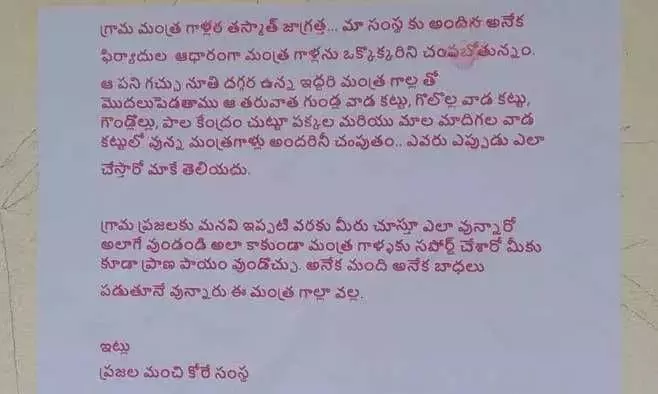 గ్రామ మంత్ర గాళ్లర తస్మాత్ జాగ్రత్త... మా సంస్థ కు అందిన అనేక
ఫిర్యాదుల ఆధారంగా మంత్ర గాళ్లను ఒక్కొక్కరిని చంపబోతున్నం.
ఆ పని గచ్చు నూతి దగ్గర ఉన్న ఇద్దరి మంత్ర గాల్ల తో
మొదలుపెడతాము ఆ తరువాత గుండ్ల వాడ కట్టు, గొల్లోల్ల వాడ కట్టు,
గొండ్లోల్లు, పాల కేంద్రం చుట్టూ పక్కల మరియు మాల మాదిగల వాడ
కట్టులో వున్న మంత్రగాళ్లు అందరినీ చంపుతం.. ఎవరు ఎప్పుడు ఎలా
చేస్తారో మాకే తెలియదు.
గ్రామ ప్రజలకు మనవి ఇప్పటి వరకు మీరు చూస్తూ ఎలా వున్నారో
అలాగే వుండండి అలా కాకుండా మంత్ర గాళ్ళకు సపోర్ట్ చేశారో మీకు
కూడా ప్రాణ పాయం వుండొచ్చు. అనేక మంది అనేక బాధలు
పడుతూనే వున్నారు ఈ మంత్ర గాల్లా వల్ల.
ఇట్లు
ప్రజల మంచి కోరే సంస్థ